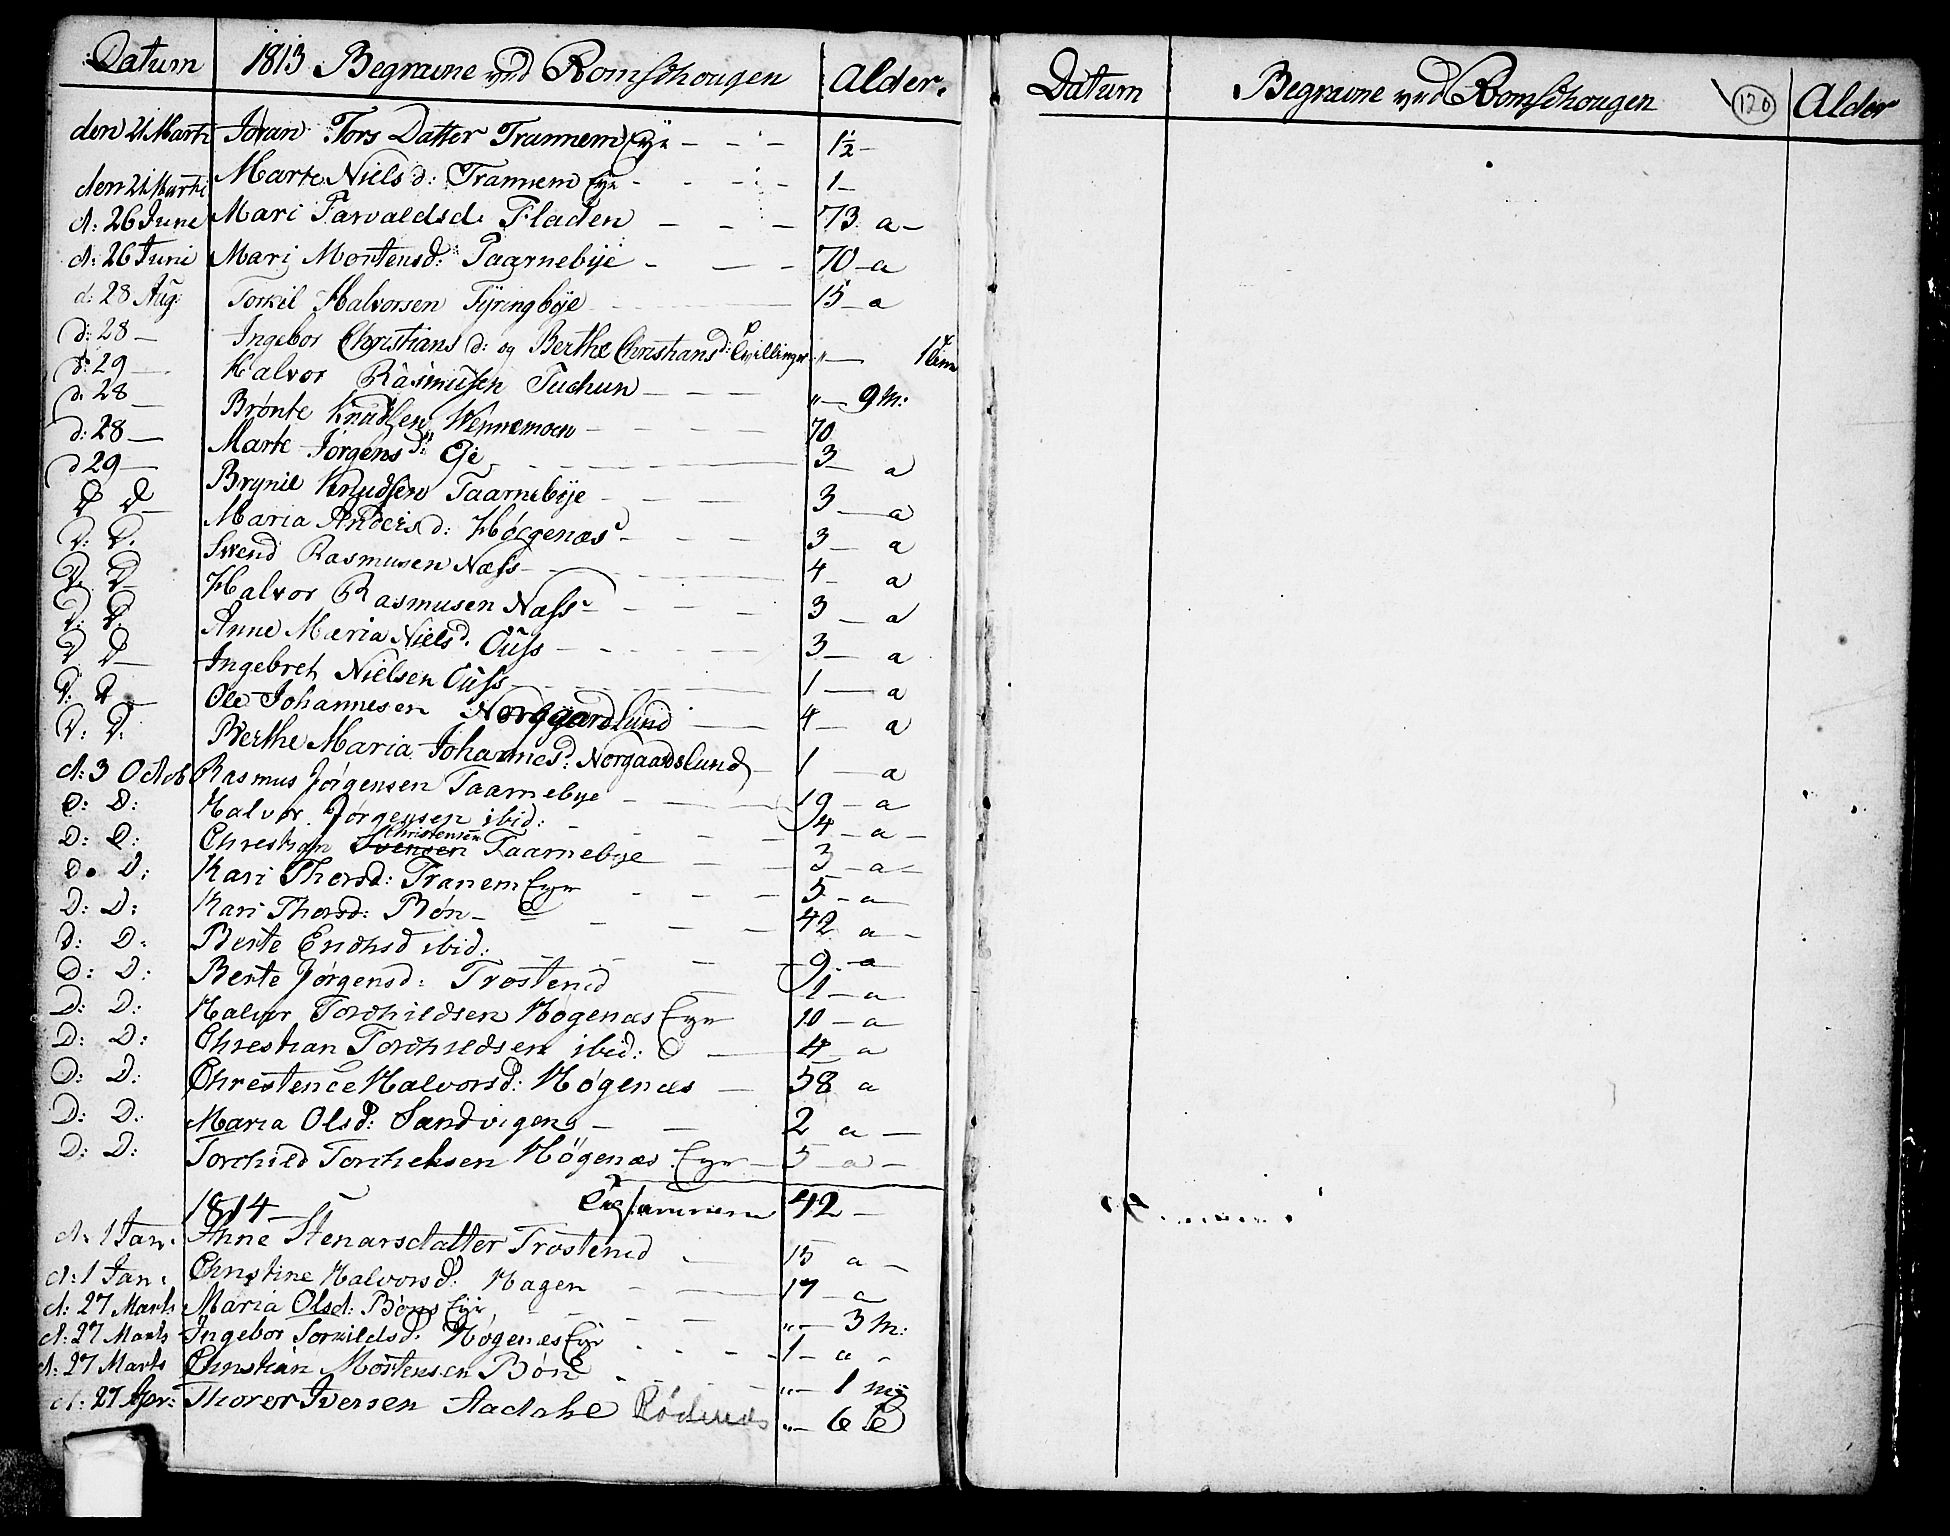 Datum 1813 Begravne ved Romschougen Alder.
den 21 Marti Joran Tors Datter Trannem Eje - - - 1½ -
den 21 Marti Marte Niels d: Trannem Eje - - - - 1 -
d: 26 June Mari Tarvaldsd: Fladen - - - 73 a -
d: 26 Juni Mari Mortensd: Taarnebye - - - 70 - a
d: 28 Aug: Torkil Halvorsen Tyringbye 15 - a
d: 28 - Ingebor Christians d: og Berthe Christiansd: Tvillinger „ -
d: 29 - Halvor Rasmusen Tuchun - - - „ - 9 M:
d: 28 - Brønte Knudsen Wennemoen - - - - 70
d: 28 - Marte Jørgensd: Eje - - - - 3 - a
d 29 - Brynil Knudsen Taarnebye - - - - 3 - a
D D - Maria Andersd: Høegenæs - - - 3 - a
D: D. Svend Rasmusen Næss - - - 4 - a
D. D Halvor Rasmusen Næss - - - 3 - a
D: D. Anne Maria Nielsd. Ouss - - - - 3 - a
D D - Ingebret Nielsen Ouss - - - 1 - a
D: D - Ole Johannesen Norggardlund 4 - a
D: D: Berthe Maria Johannesd: Norgaardslund 1 - a
d: 3 Octob Rasmus Jørgensen Taarnebye - - - 19 - a
D: D: Halvor Jørgensen ibid: - - - 4 - a -
Christensen
D: D: Christian Svensen Taarnebye - - 3 - a -
D. D: Kari Thorsd: Tranem Eje - - - 5 - a -
D: D: Kari Thorsd: Bøn - - - - 42 a -
D: D: Berte Endresd ibid: - - - 9 - a
D: D: Berte Jørgensd: Trosterud - 1 - a
D: D: Halvor Torchildsen Høgenæs Eje 10 - a -
D: D: Christian Torchildsen ibid: - 4 - a
D: D: Christence Halvorsd: Høgenæs - 58 a
D: D: Maria Olsd: Sandvigen - - 2 a -
D: D: Torchild Torchildsen Høgenæs Eje - 5 - a -
1814 - Tilsammen 42 -
d: 1 Jan: Anne Stenarsdatter Trosterud - 15 a -
d: 1 Jan: Christine Halvorsd: Hagen - - 17 - a
d: 27 Marts Maria Olsd: Bøns Eje - - - „ - 3 M:
d: 27 Marts Ingebor Torkildsd: Høgenæs Eje - - - - 1 - a -
d: 27 Marts Christian Mortensen Bøn - - - - „ - 1 m:
d: 27 Apr: Thoror Iversen Rødenes „ - 6
Datum Begravne ved Romschougen 120 Alder